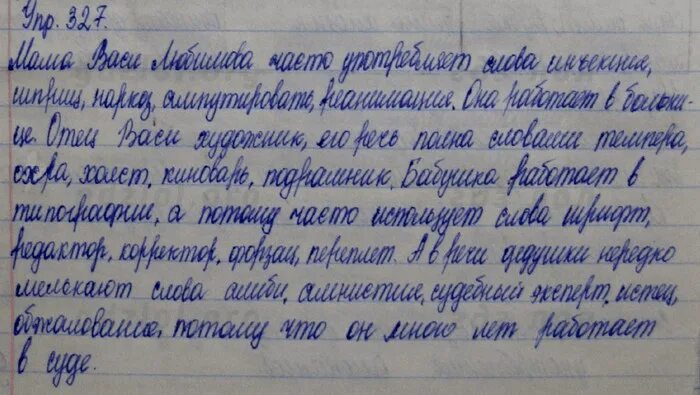 Упр. 327.
Мама Васи Любимова часто употребляет слова инъекция,
шприц, наркоз, ампутировать, реанимация. Она работает в больни-
це. Отец Васи художник, его речь полна словами темпера,
охра, холст, киноварь, подрамник. Бабушка работает в
типографии, а потому часто использует слова шрифт,
редактор, корректор, форзац, переплет. А в речи дедушки нередко
мелькают слова алиби, амнистия, судебный эксперт, истец,
обжалование, потому что он много лет работает
в суде.